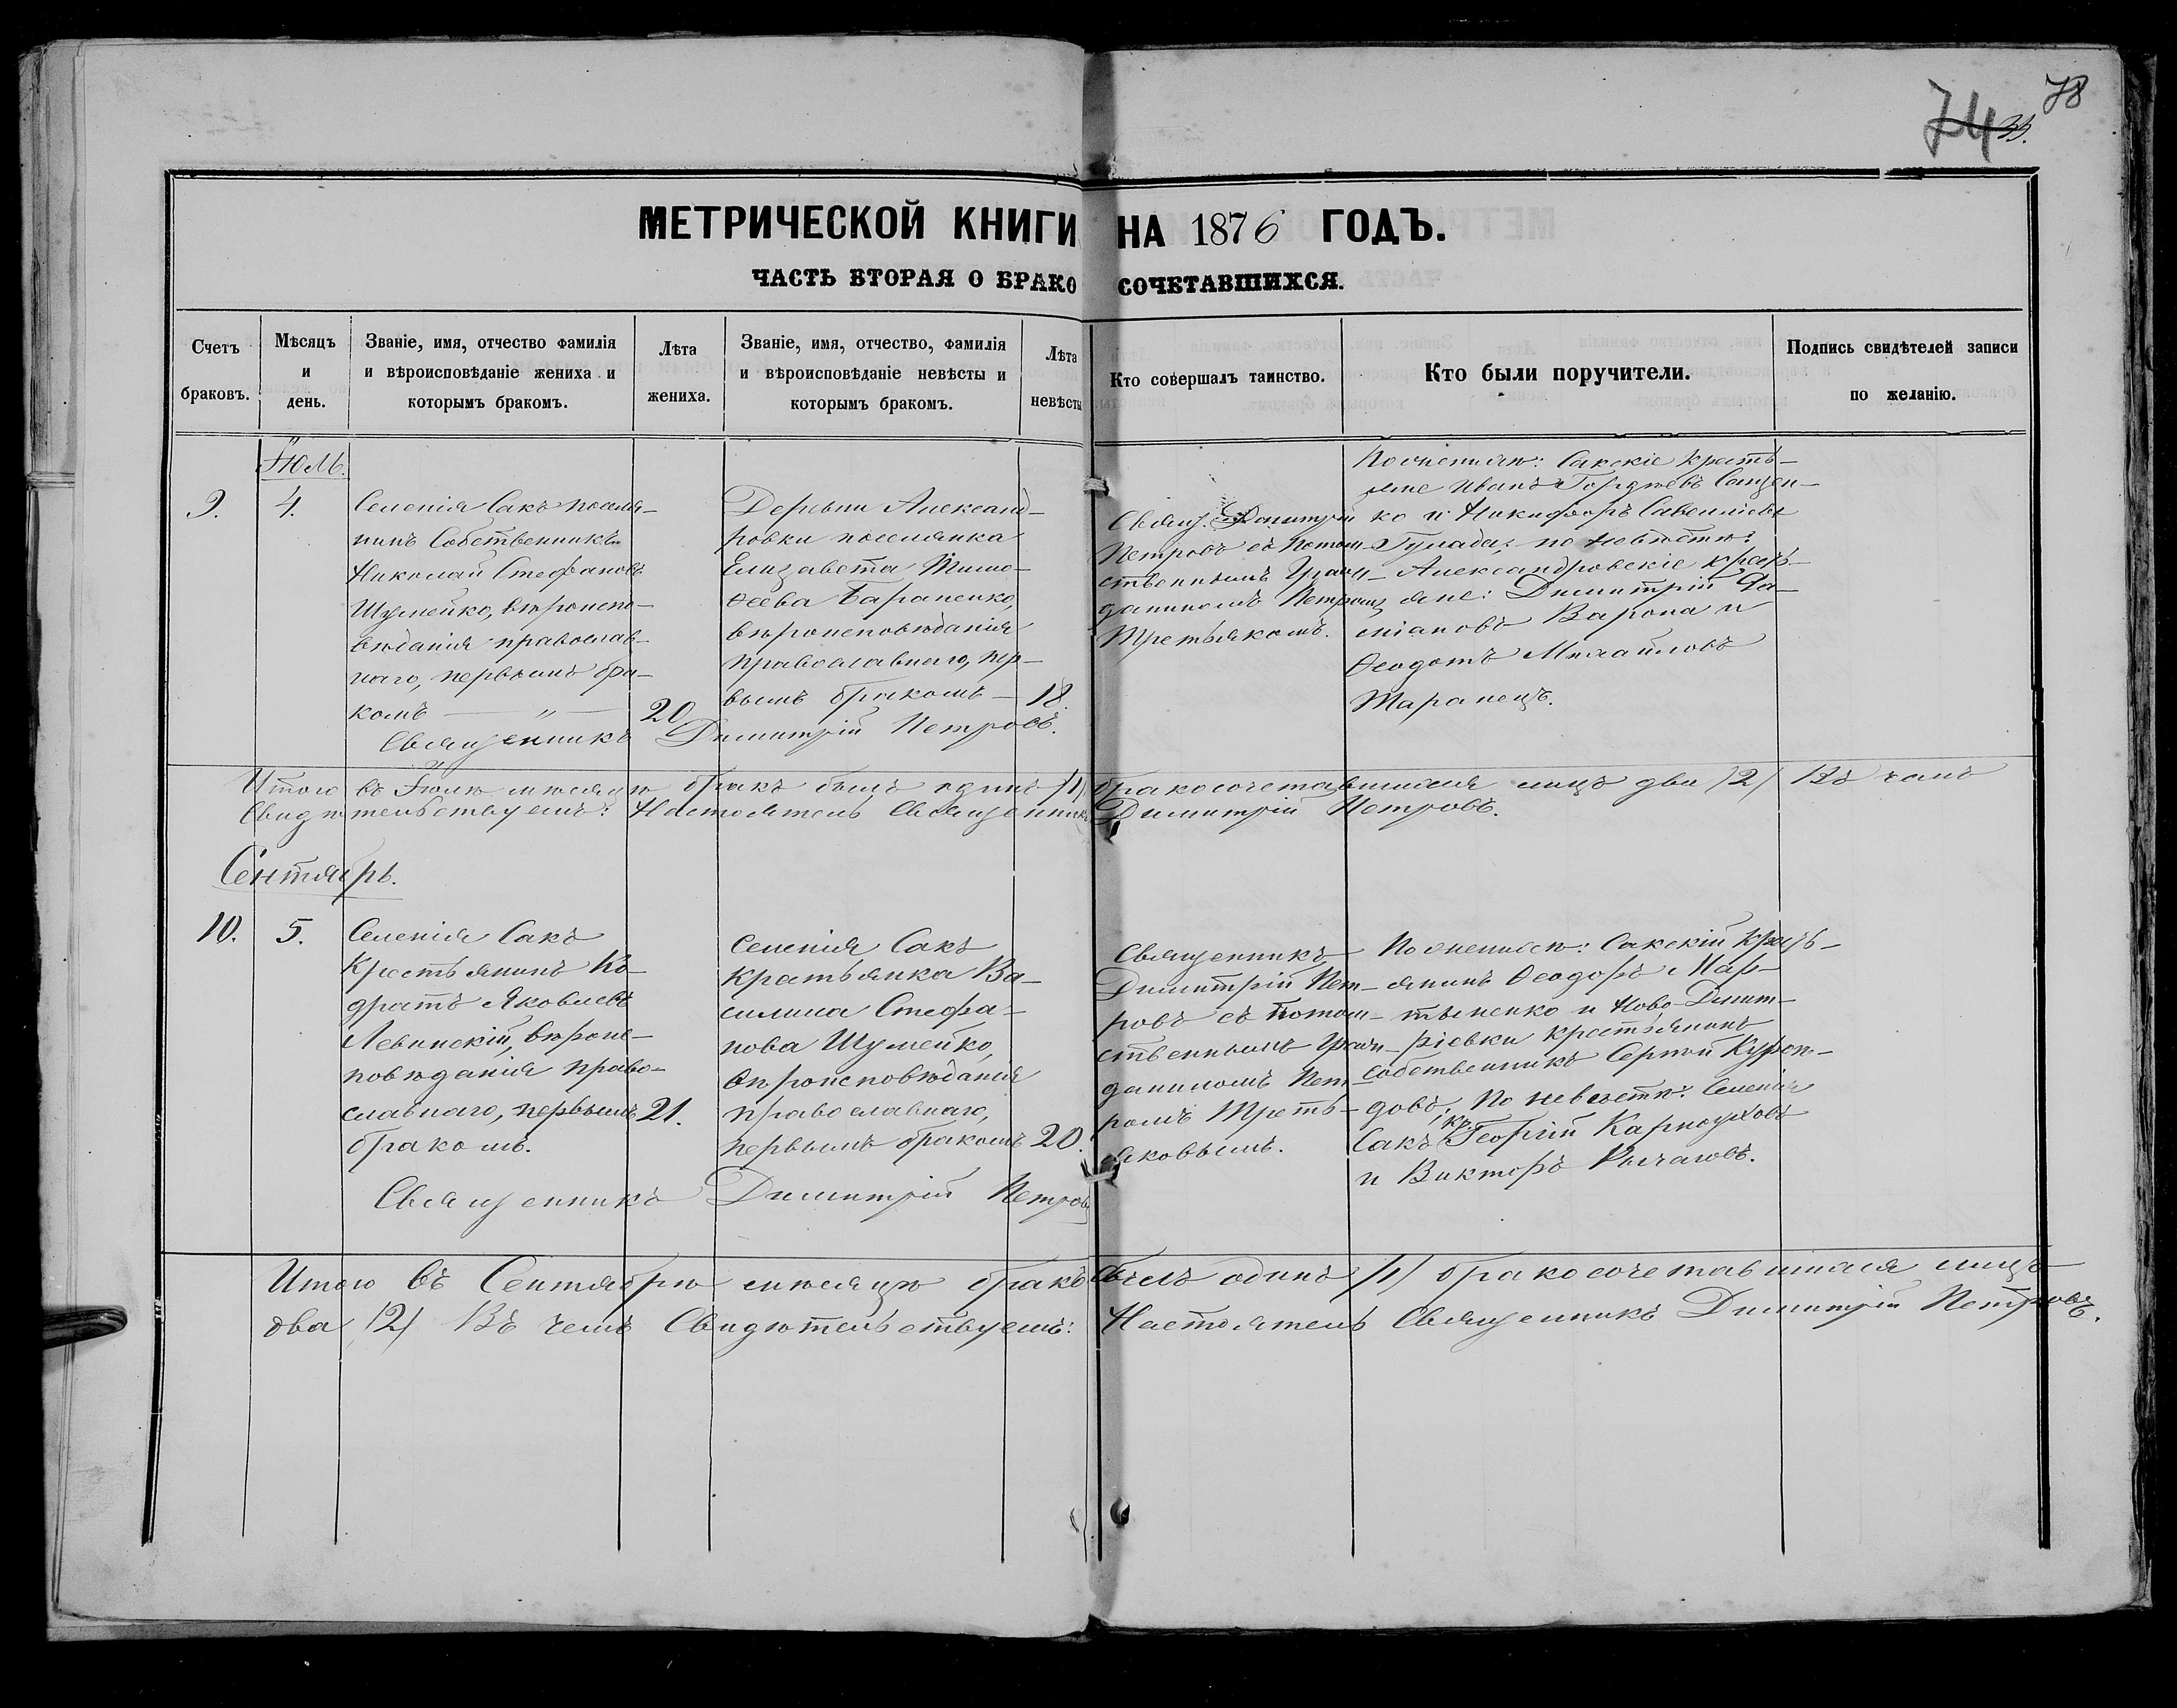 78
74 35.
МЕТРИЧЕСКОЙ КНИГИ НА 1876 ГОДЪ.
ЧАСТЬ ВТОРАЯ О БРАКОСОЧЕТАВШИХСЯ.
Счетъ браковъ.
Мѣсяцъ и день.
Званіе, имя, отчество фамилія
и вѣроисповѣданіе жениха и
которымъ бракомъ.
Лѣта жениха.
Званіе, имя, отчество, фамилія
и вѣроисповѣданіе невѣсты и
которымъ бракомъ.
Лѣта невѣсты
Кто совершалъ таинство.
Кто были поручители.
Подпись свидѣтелей записи
по желанію.
Іюль.
9.
4.
Селенія Сакъ поселя-
нинъ Собственникъ
Николай Стефановъ
Шумейко, вѣроиспо-
вѣданія православ-
наго, первымъ бра-
комъ — „ —
20
Деревни Александ-
ровки поселянка
Елизавета Тимо-
ѳеева Бараненко,
вѣроисповѣданія
православнаго, пер-
вымъ бракомъ —
18.
Свящ. Димитрій
Петровъ съ Потом-
ственнымъ Граж-
даниномъ Петромъ
Третьякомъ.
По женихѣ: Сакскіе кресть-
яне Иванъ Гордѣевъ Сацен-
ко и Никифоръ Савельевъ
Гулада; по невѣстѣ:
Александровскіе кресть-
яне: Димитрій Да-
міановъ Варона и
Ѳеодотъ Михайловъ
Таранецъ.
Священникъ Димитрій Петровъ.
Итого въ Іюлѣ мѣсяцѣ бракъ былъ одинъ /1/ бракосочетавшихся лицъ два /2/ Въ чемъ
Свидѣтельствуемъ: Настоятель Священникъ Димитрій Петровъ.
Сентябрь.
10.
5.
Селенія Сакъ
Крестьянинъ Ко-
дратъ Яковлевъ
Левинскій, вѣроис-
повѣданія право-
славнаго, первымъ
бракомъ.
21.
Селенія Сакъ
Крестьянка Ва-
силиса Стефа-
нова Шумейко,
вѣроисповѣданія
православнаго,
первымъ бракомъ
20.
Священникъ
Димитрій Пет-
ровъ съ Потом-
ственнымъ Граж-
даниномъ Пет-
ромъ Треть-
яковымъ.
По женихѣ: Сакскій кресть-
янинъ Ѳеодоръ Мар-
тыненко и Ново-Димит-
ріевки крестьянинъ
собственникъ Сергѣй Курѣ-
довъ; По невѣстѣ: Селенія
Сакъ кр. Георгій Карпоуховъ
и Викторъ Рычаговъ.
Священникъ Димитрій Петровъ
Итого въ Сентябрѣ мѣсяцѣ бракъ былъ одинъ /1/ бракосочетавшихся лицъ
два /2/ Въ чемъ Свидѣтельствуемъ: Настоятель Священникъ Димитрій Петровъ.